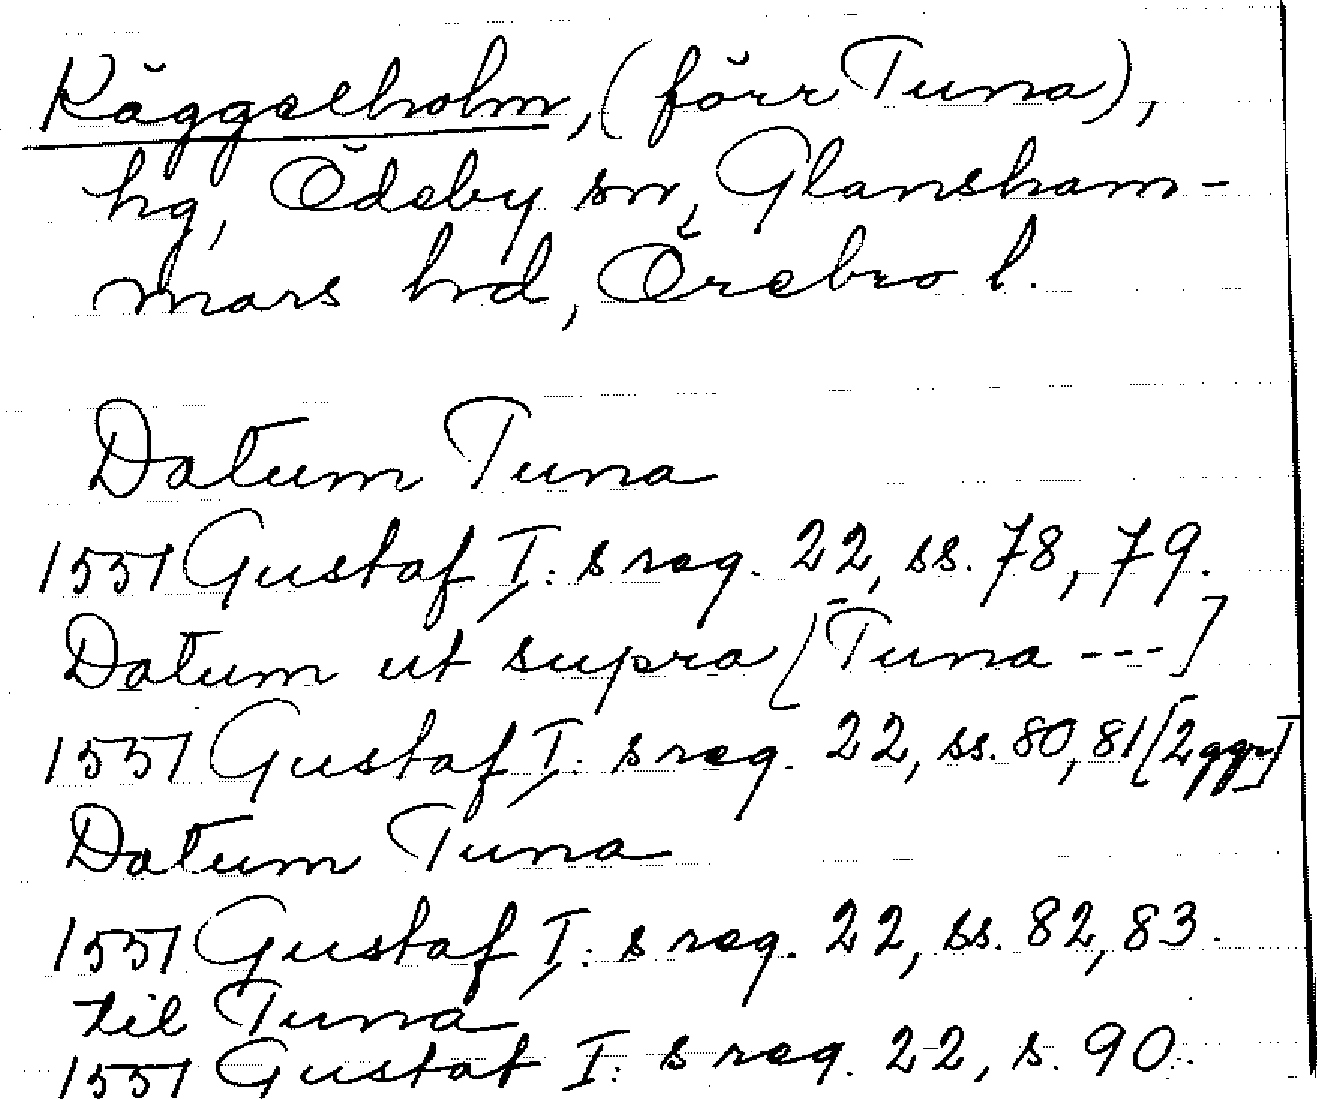 Käggelholm, (förr Tuna),
hg, Ödeby sn, Glansham-
mars hrd, Örebro l.
Datum Tuna
1551 Gustaf I:s reg. 22, ss. 78, 79.
Datum ut supra [Tuna ---]
1551 Gustaf I:s reg. 22, ss. 80, 81 [2 ggr]
Datum Tuna
1551 Gustaf I:s reg. 22, ss. 82, 83.
til Tuna
1551 Gustaf I:s reg. 22, s. 90.